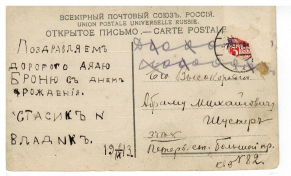 ВСЕМІРНЫЙ ПОЧТОВЫЙ СОЮЗЪ. РОССІЯ.
UNION POSTALE UNIVERSELLE. RUSSIE.
ОТКРЫТОЕ ПИСЬМО.—CARTE POSTALE
ПОЗДРАВЛЯЕМ
ДОРОГОГО
БРОНЮ С ДНЕМ
РОЖДЕНІЯ.
СТАСИК И
ВЛАДИК.
Его Высокородію
Абраму Михайловичу
Шустеръ
Петерб. ст. Большой пр.
№82.